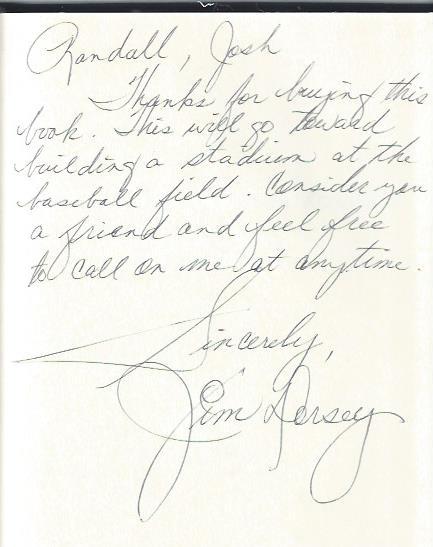 Randall, Josh
Thanks for buying this
book. This will go toward
building a stadium at the
baseball field. Consider you
a friend and feel free
to call on me at anytime.
Sincerely,
Jim Dorsey